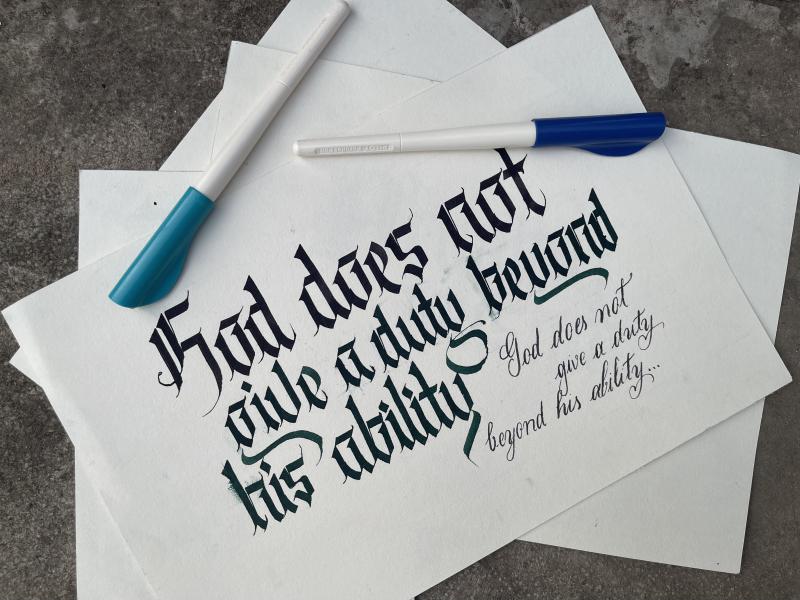 God does not
give a duty beyond
his ability
God does not
give a duty
beyond his ability...